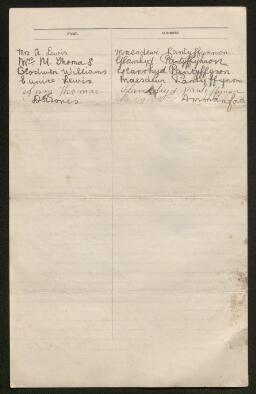 NAME. ADDRESS.
Mrs A Lewis Maesdewi Pantyffynnon
Mrs M. Thomas Glanlyd Pantyffynnon
Blodwen Williams Pantyffynon
Eunice Lewis Maesdewi Pantyffynon
Thomas Pantyffynnon
D Jones Ammanford